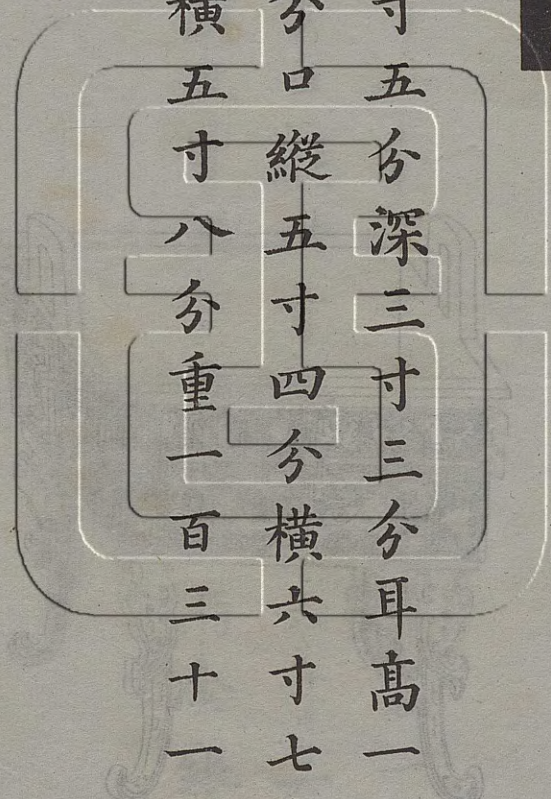 寸五分深三寸三分耳髙一
分口縱五寸四分橫六寸七
橫五寸八分重一百三十一